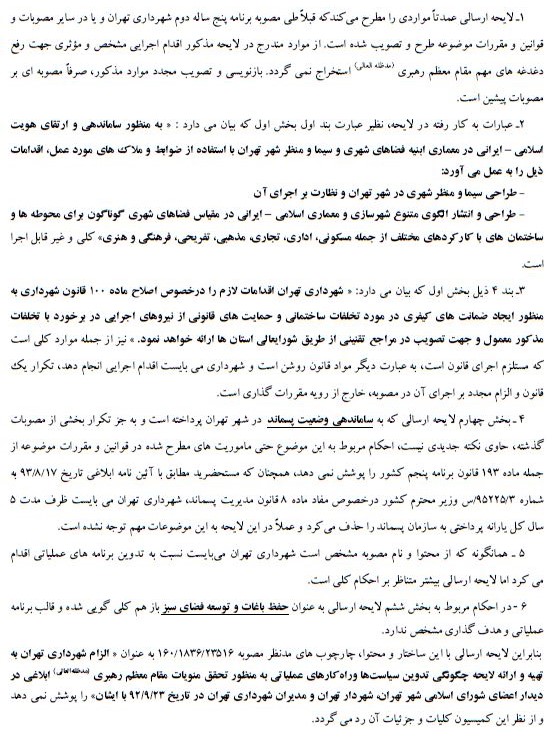 ۱ـ لایحه ارسالی عمدتاً مواردی را مطرح می‌کندکه قبلاً طی مصوبه برنامه پنج ساله دوم شهرداری تهران و یا در سایر مصوبات و
قوانین و مقررات موضوعه طرح و تصویب شده است. از موارد مندرج در لایحه مذکور اقدام اجرایی مشخص و مؤثری جهت رفع
دغدغه های مهم مقام معظم رهبری (مدظله العالی) استخراج نمی گردد. بازنویسی و تصویب مجدد موارد مذکور، صرفاً مصوبه ای بر
مصوبات پیشین است.
۲ـ عبارات به کار رفته در لایحه، نظیر عبارت بند اول بخش اول که بیان می دارد : « به منظور ساماندهی و ارتقای هویت
اسلامی – ایرانی در معماری ابنیه فضاهای شهری و سیما و منظر شهر تهران با استفاده از ضوابط و ملاک های مورد عمل، اقدامات
ذیل را به عمل می آورد:
– طراحی سیما و منظر شهری در شهر تهران و نظارت بر اجرای آن
– طراحی و انتشار الگوی متنوع شهرسازی و معماری اسلامی – ایرانی در مقیاس فضاهای شهری گوناگون برای محوطه ها و
ساختمان های با کارکردهای مختلف از جمله مسکونی، اداری، تجاری، مذهبی، تفریحی، فرهنگی و هنری» کلی و غیر قابل اجرا
است.
۳ـ بند ۴ ذیل بخش اول که بیان می دارد: « شهرداری تهران اقدامات لازم را درخصوص اصلاح ماده ۱۰۰ قانون شهرداری به
منظور ایجاد ضمانت های کیفری در مورد تخلفات ساختمانی و حمایت های قانونی از نیروهای اجرایی در برخورد با تخلفات
مذکور معمول و جهت تصویب در مراجع تقنینی از طریق شورایعالی استان ها ارائه خواهد نمود. » نیز از جمله موارد کلی است
که مستلزم اجرای قانون است، به عبارت دیگر مواد قانون روشن است و شهرداری می بایست اقدام اجرایی انجام دهد، تکرار یک
قانون و الزام مجدد بر اجرای آن در مصوبه، خارج از رویه مقررات گذاری است.
۴ ـ بخش چهارم لایحه ارسالی که به ساماندهی وضعیت پسماند در شهر تهران پرداخته است و به جز تکرار بخشی از مصوبات
گذشته، حاوی نکته جدیدی نیست، احکام مربوط به این موضوع حتی ماموریت های مطرح شده در قوانین و مقررات موضوعه از
جمله ماده ۱۹۳ قانون برنامه پنجم کشور را پوشش نمی دهد، همچنان که مستحضرید مطابق با آئین نامه ابلاغی تاریخ ۹۳/۸/۱۷ به
شماره ۹۵۲۲۵/۳/س وزیر محترم کشور درخصوص مفاد ماده ۸ قانون مدیریت پسماند، شهرداری تهران می بایست ظرف مدت ۵
سال کل یارانه پرداختی به سازمان پسماند را حذف می‌کرد و عملاً در این لایحه به این موضوعات مهم توجه نشده است.
۵ ـ همانگونه که از محتوا و نام مصوبه مشخص است شهرداری تهران می‌بایست نسبت به تدوین برنامه های عملیاتی اقدام
می کرد اما لایحه ارسالی بیشتر متناظر بر احکام کلی است.
۶ - در احکام مربوط به بخش ششم لایحه ارسالی به عنوان حفظ باغات و توسعه فضای سبز باز هم کلی گویی شده و قالب برنامه
عملیاتی و هدف گذاری مشخص ندارد.
بنابراین لایحه ارسالی با این ساختار و محتوا، چارچوب های مدنظر مصوبه ۱۶۰/۱۸۳۶/۲۳۵۱۶ به عنوان « الزام شهرداری تهران به
تهیه و ارائه لایحه چگونگی تدوین سیاست‌ها و راه‌کارهای عملیاتی به منظور تحقق منویات مقام معظم رهبری (مدظله‌العالی) ابلاغی در
دیدار اعضای شورای اسلامی شهر تهران، شهردار تهران و مدیران شهرداری تهران در تاریخ ۹۲/۹/۲۳ با ایشان» را پوشش نمی دهد
و از نظر این کمیسیون کلیات و جزئیات آن رد می گردد.